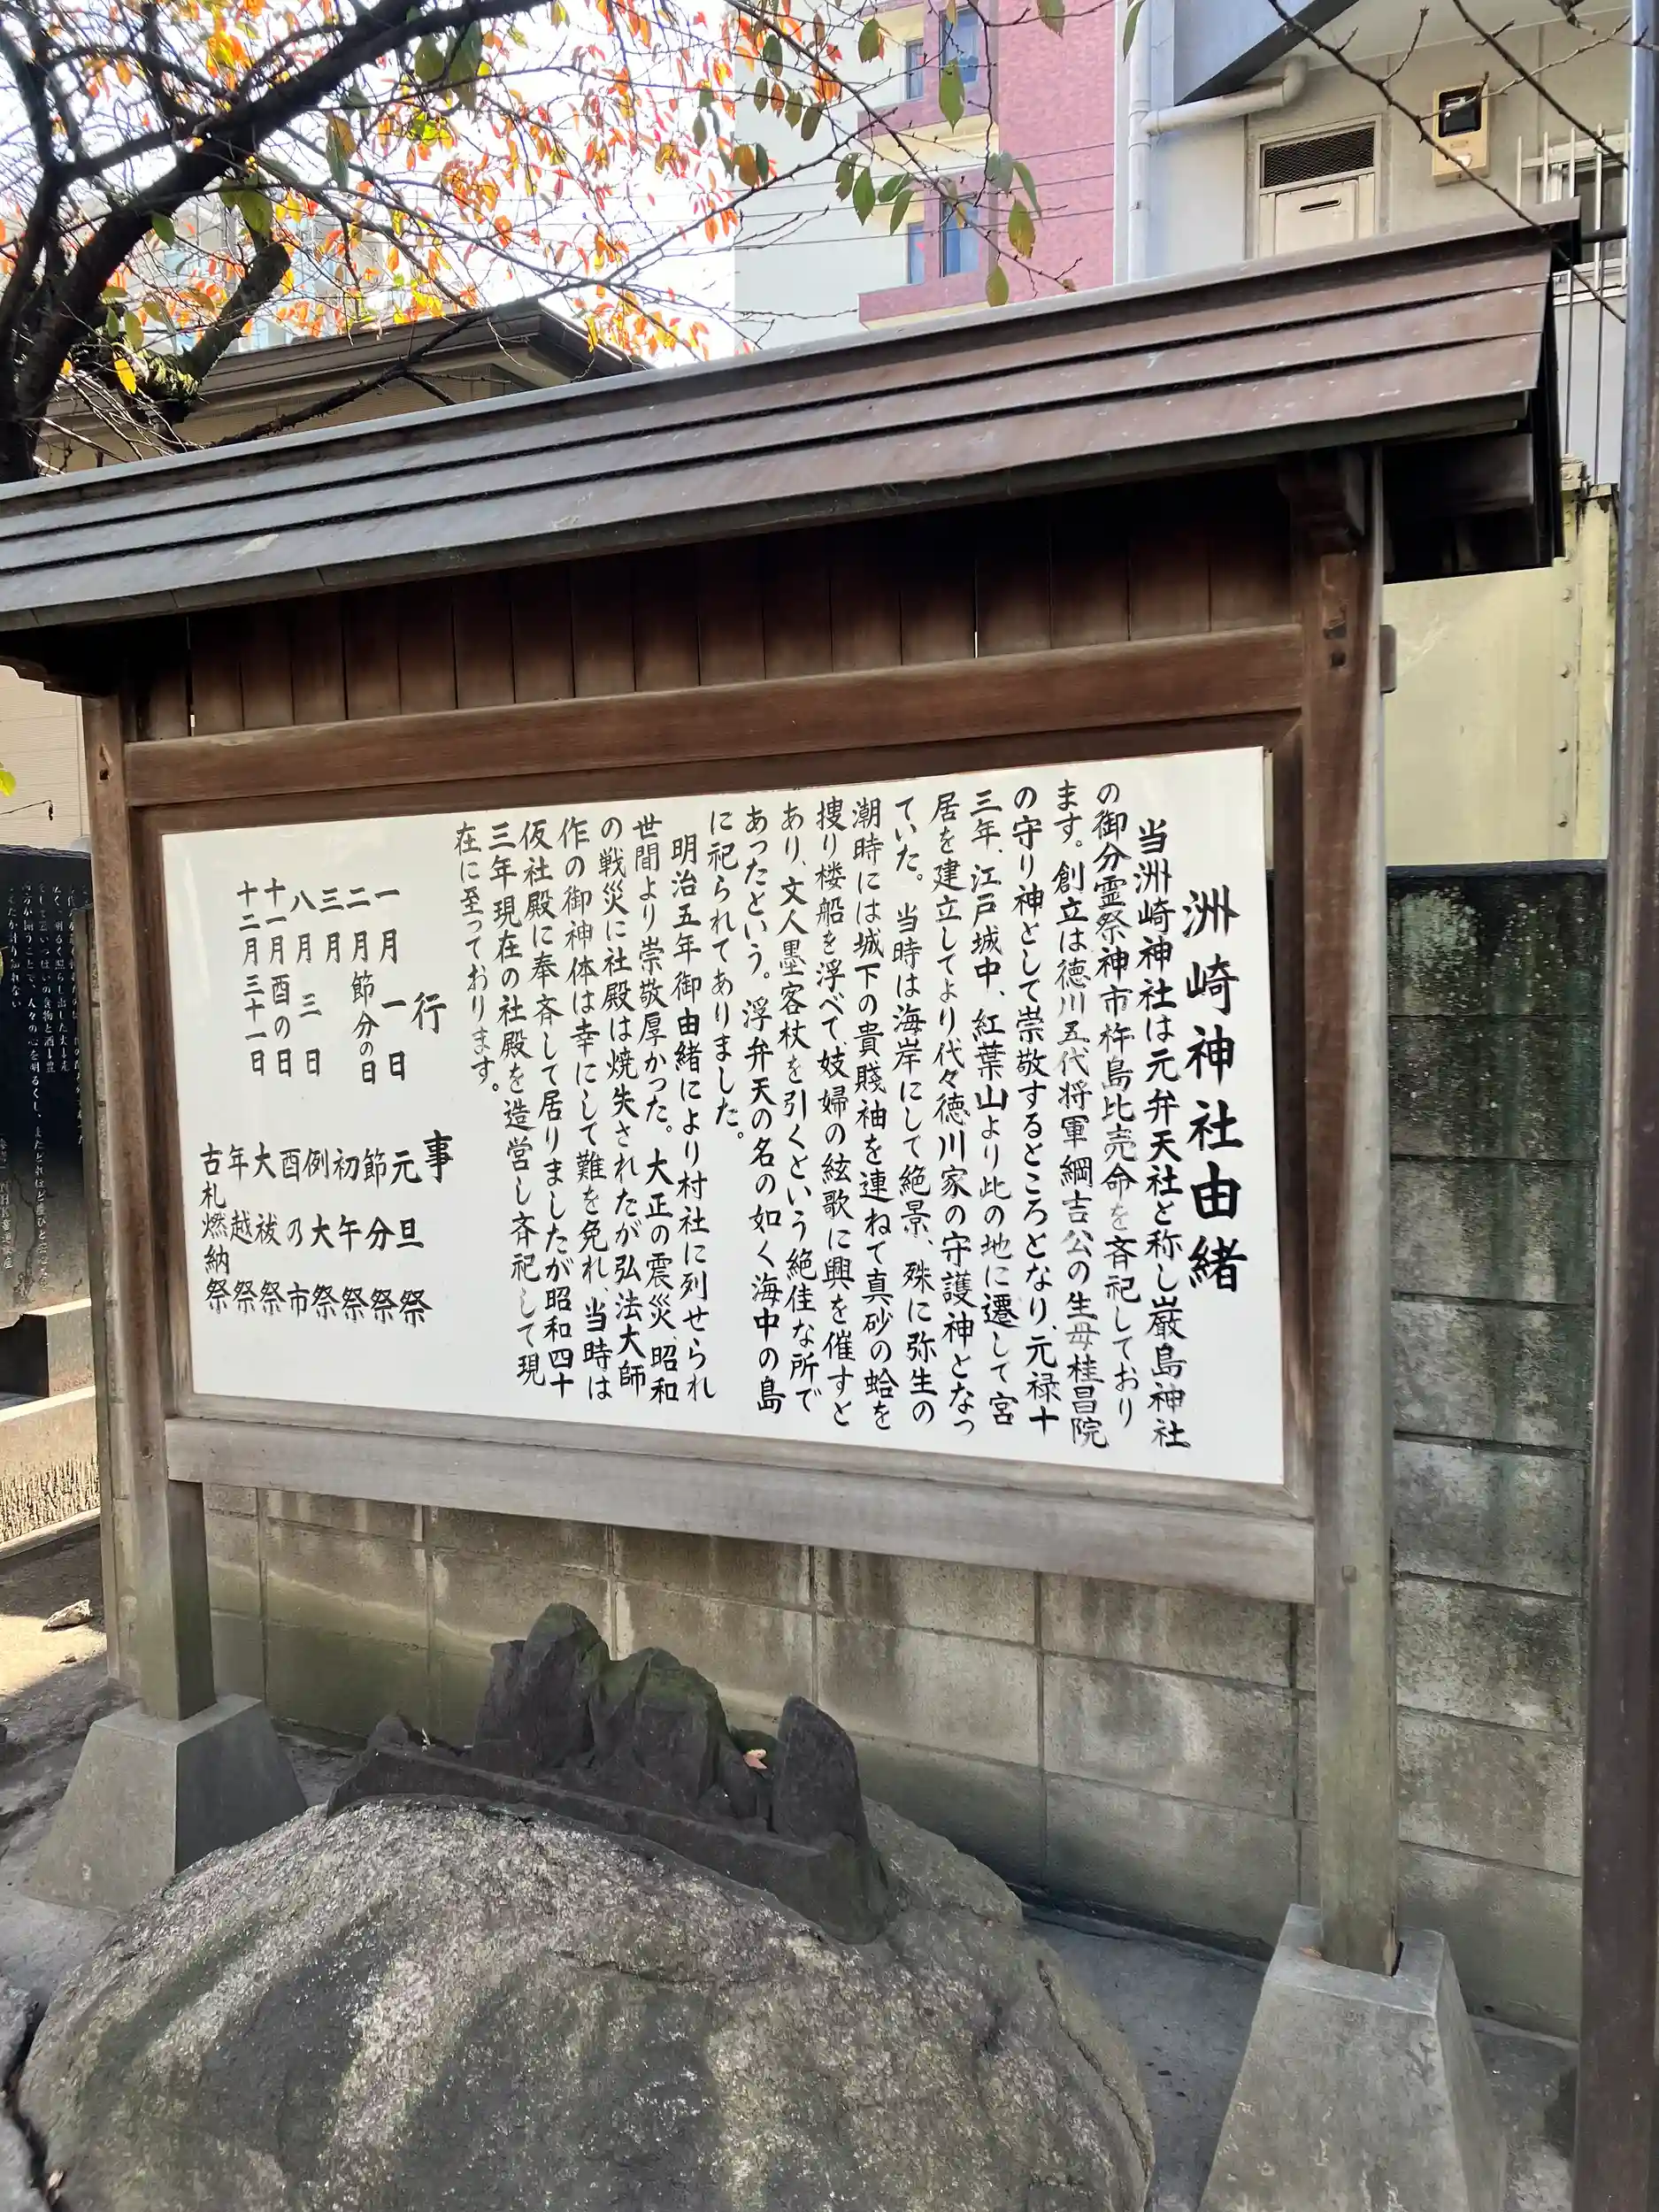 洲崎神社由緒
当洲崎神社は元弁天社と称し巌島神社
の御分霊祭神市杵島比売命を斉祀しており
ます。創立は徳川五代将軍綱吉公の生母桂昌院
の守り神として崇敬するところとなり、元禄十
三年、江戸城中、紅葉山より此の地に遷して宮
居を建立してより代々徳川家の守護神となっ
ていた。当時は海岸にして絶景、殊に弥生の
潮時には城下の貴賤袖を連ねて真砂の蛤を
捜り楼船を浮べて妓婦の絃歌に興を催すと
あり、文人墨客杖を引くという絶佳な所で
あったという。浮弁天の名の如く海中の島
に祀られてありました。
明治五年御由緒により村社に列せられ
世間より崇敬厚かった。大正の震災、昭和
の戦災に社殿は焼失されたが弘法大師
作の御神体は幸にして難を免れ、当時は
仮社殿に奉斉して居りましたが昭和四十
三年現在の社殿を造営し斉祀して現
在に至っております。
行事
一月一日 元旦祭
二月節分の日 節分祭
三月 初午祭
八月三日 例大祭
十一月酉の日 酉乃市
十二月三十一日 大祓祭
年越祭
古札燃納祭